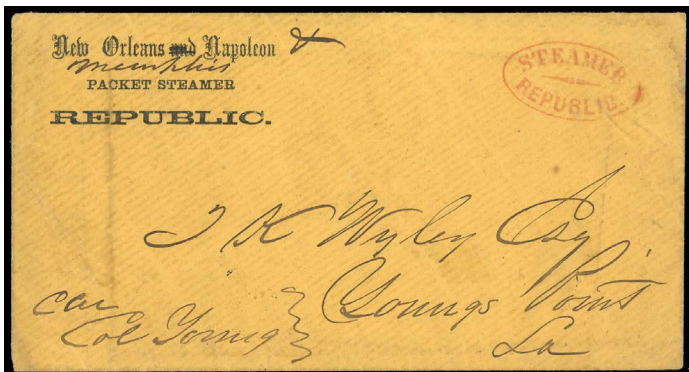 New Orleans and Napoleon &
Memphis
PACKET STEAMER
REPUBLIC.
STEAMER
REPUBLIC.
J K Wyley Esq
Youngs Point
La
care
Col Young